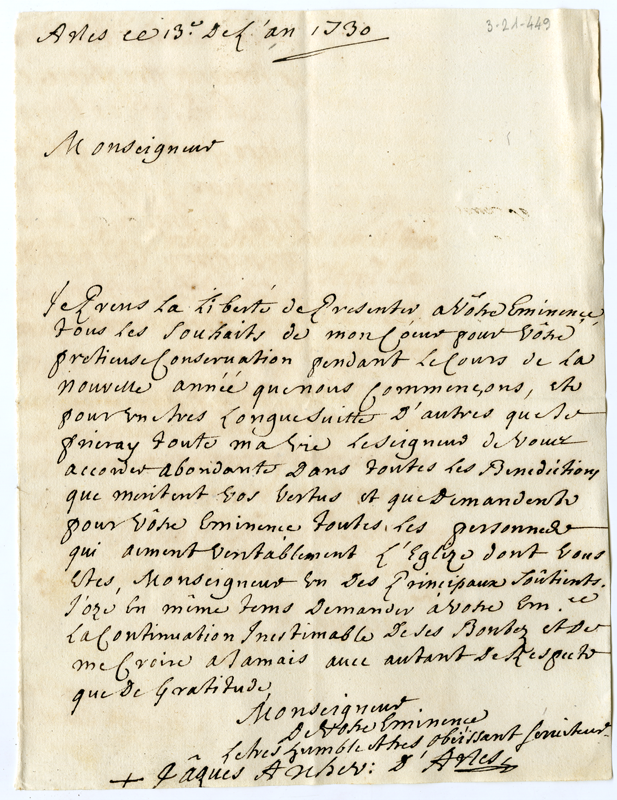 Arles ce 13.e De L'an 1730
3-21-449
Monseigneur
Je Prens La Liberté de Presenter a Vôtre Eminence,
tous les Souhaits de mon Coeur pour Vôtre
pretieuse Conservation pendant Le Cours de La
nouvelle année que nous Commençons, et
pour Une tres Longue Suitte D'autres que Je
prieray toute ma Vie Le Seigneur de Vous
accorder abondante Dans toutes Les Benedictions
que meritent Vos Vertus et que Demandent
pour Vôtre Eminence toutes Les personnes
qui aiment Veritablement L'Eglize dont Vous
Etes, Monseigneur Un Des Principaux Soûtients.
J'oze En même tems Demander à Votre Em.ce
La Continuation Inestimable De ses Bontez et De
me Croire a Jamais avec autant De Respect
que De Gratitude
Monseigneur
De Votre Eminence
Le tres humble et tres Obeissant Serviteur
+ Jâques Archev: D'Arles